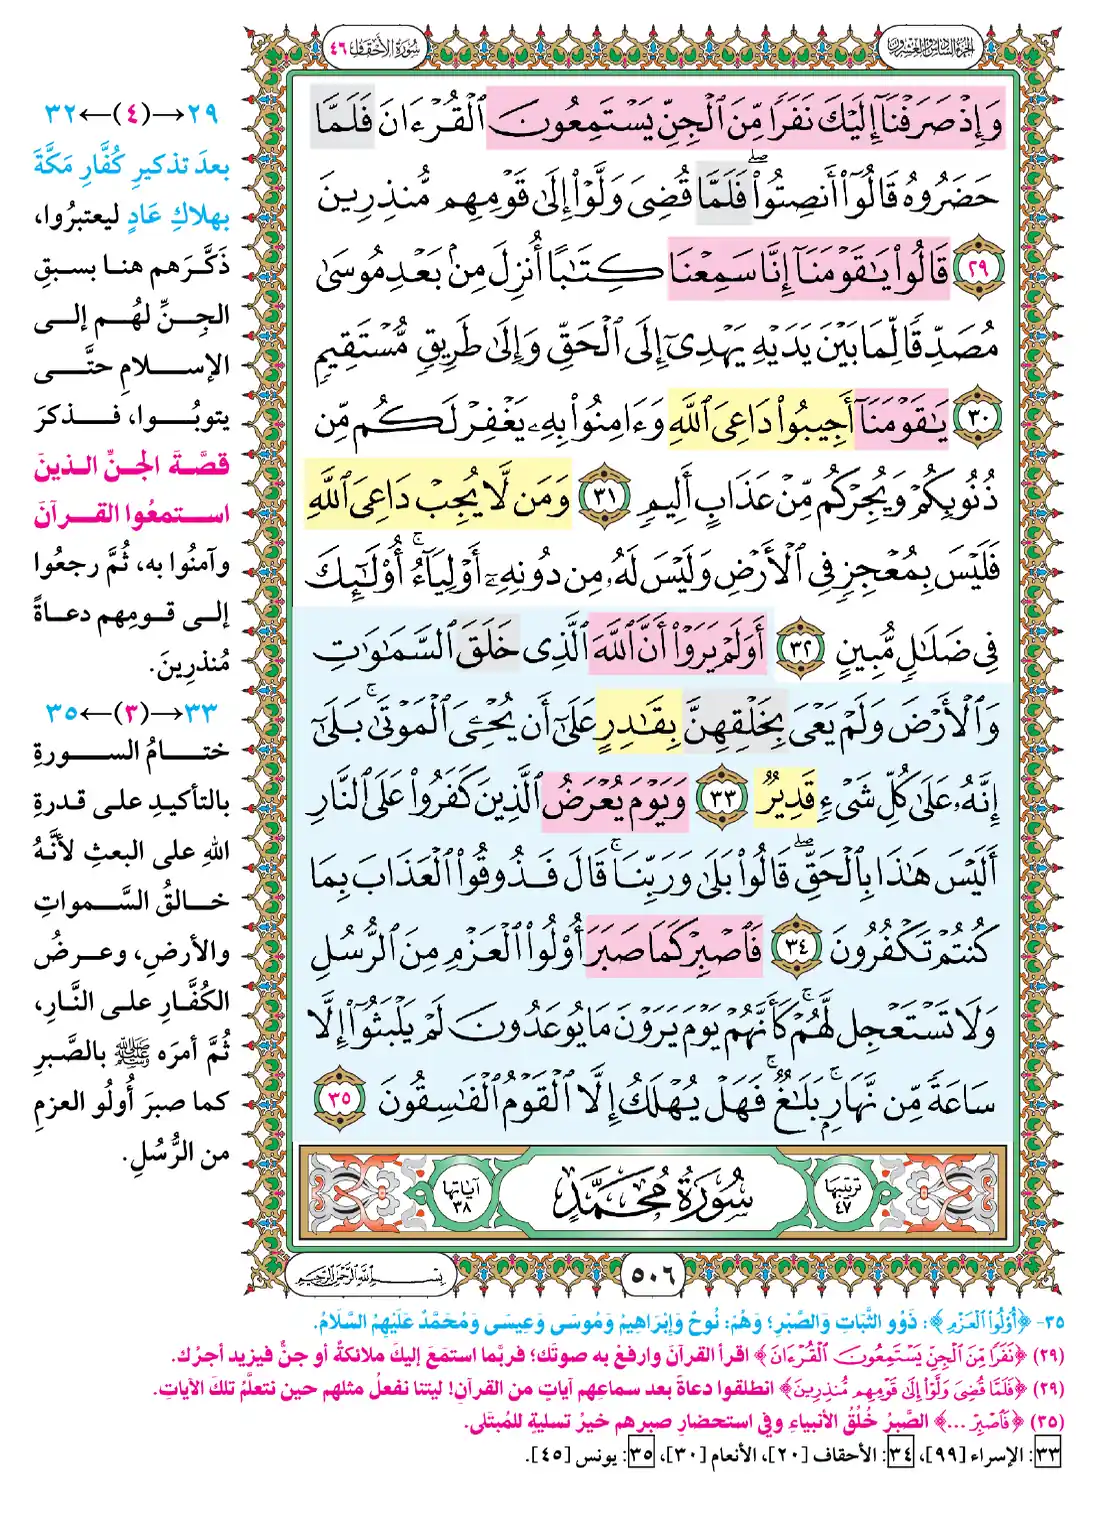 الجزء السادس والعشرون
سورة الأحقاف ٤٦
وَإِذْ صَرَفْنَآ إِلَيْكَ نَفَرًا مِّنَ ٱلْجِنِّ يَسْتَمِعُونَ ٱلْقُرْءَانَ فَلَمَّا
حَضَرُوهُ قَالُوٓا۟ أَنصِتُوا۟ ۖ فَلَمَّا قُضِىَ وَلَّوْا۟ إِلَىٰ قَوْمِهِم مُّنذِرِينَ
٢٩ قَالُوا۟ يَـٰقَوْمَنَآ إِنَّا سَمِعْنَا كِتَـٰبًا أُنزِلَ مِنۢ بَعْدِ مُوسَىٰ
مُصَدِّقًا لِّمَا بَيْنَ يَدَيْهِ يَهْدِىٓ إِلَى ٱلْحَقِّ وَإِلَىٰ طَرِيقٍ مُّسْتَقِيمٍ
٣٠ يَـٰقَوْمَنَآ أَجِيبُوا۟ دَاعِىَ ٱللَّهِ وَءَامِنُوا۟ بِهِۦ يَغْفِرْ لَكُم مِّن
ذُنُوبِكُمْ وَيُجِرْكُم مِّنْ عَذَابٍ أَلِيمٍ ٣١ وَمَن لَّا يُجِبْ دَاعِىَ ٱللَّهِ
فَلَيْسَ بِمُعْجِزٍ فِى ٱلْأَرْضِ وَلَيْسَ لَهُۥ مِن دُونِهِۦٓ أَوْلِيَآءُ ۚ أُو۟لَـٰٓئِكَ
فِى ضَلَـٰلٍ مُّبِينٍ ٣٢ أَوَلَمْ يَرَوْا۟ أَنَّ ٱللَّهَ ٱلَّذِى خَلَقَ ٱلسَّمَـٰوَٰتِ
وَٱلْأَرْضَ وَلَمْ يَعْىَ بِخَلْقِهِنَّ بِقَـٰدِرٍ عَلَىٰٓ أَن يُحْـِۧىَ ٱلْمَوْتَىٰ ۚ بَلَىٰٓ
إِنَّهُۥ عَلَىٰ كُلِّ شَىْءٍ قَدِيرٌ ٣٣ وَيَوْمَ يُعْرَضُ ٱلَّذِينَ كَفَرُوا۟ عَلَى ٱلنَّارِ
أَلَيْسَ هَـٰذَا بِٱلْحَقِّ ۖ قَالُوا۟ بَلَىٰ وَرَبِّنَا ۚ قَالَ فَذُوقُوا۟ ٱلْعَذَابَ بِمَا
كُنتُمْ تَكْفُرُونَ ٣٤ فَٱصْبِرْ كَمَا صَبَرَ أُو۟لُوا۟ ٱلْعَزْمِ مِنَ ٱلرُّسُلِ
وَلَا تَسْتَعْجِل لَّهُمْ ۚ كَأَنَّهُمْ يَوْمَ يَرَوْنَ مَا يُوعَدُونَ لَمْ يَلْبَثُوٓا۟ إِلَّا
سَاعَةً مِّن نَّهَارٍۭ ۚ بَلَـٰغٌ ۚ فَهَلْ يُهْلَكُ إِلَّا ٱلْقَوْمُ ٱلْفَـٰسِقُونَ ٣٥
ترتيبها
٤٧
سُورَةُ مُحَمَّدٍ
آياتها
٣٨
٥٠٦
بِسْمِ ٱللَّهِ ٱلرَّحْمَـٰنِ ٱلرَّحِيمِ
٢٩→(٤)←٣٢
بعدَ تذكيرِ كُفَّارِ مَكَّةَ
بهلاكِ عَادٍ ليعتبرُوا،
ذَكَّرَهم هنا بسبقِ
الجِنِّ لهُم إلى
الإسلامِ حتَّى
يتوبُوا، فذكرَ
قصَّةَ الجنِّ الذينَ
استمعُوا القرآنَ
وآمنُوا به، ثُمَّ رجعُوا
إلى قومِهم دعاةً
مُنذرِينَ.
٣٣→(٣)←٣٥
ختامُ السورةِ
بالتأكيدِ على قدرةِ
اللهِ على البعثِ لأنَّهُ
خالقُ السَّمواتِ
والأرضِ، وعرضُ
الكُفَّارِ على النَّارِ،
ثُمَّ أمرَه ﷺ بالصَّبرِ
كما صبرَ أُولُو العزمِ
من الرُّسُلِ.
٣٥- ﴿أُوْلُواْ ٱلْعَزْمِ﴾: ذَوُو الثَّبَاتِ وَالصَّبْرِ؛ وَهُمْ: نُوحٌ وَإِبْرَاهِيمُ وَمُوسَى وَعِيسَى وَمُحَمَّدٌ عَلَيْهِمُ السَّلَامُ.
(٢٩) ﴿نَفَرًا مِّنَ ٱلْجِنِّ يَسْتَمِعُونَ ٱلْقُرْءَانَ﴾ اقرأ القرآنَ وارفعْ به صوتَك؛ فربَّما استمَعَ إليكَ ملائكةٌ أو جنٌّ فيزيد أجرُك.
(٢٩) ﴿فَلَمَّا قُضِىَ وَلَّوْاْ إِلَىٰ قَوْمِهِم مُّنذِرِينَ﴾ انطلقُوا دعاةً بعد سماعِهم آياتٍ من القرآنِ! ليتنا نفعلُ مثلهم حين نتعلَّمُ تلكَ الآياتِ.
(٣٥) ﴿فَٱصْبِرْ ...﴾ الصَّبرُ خُلُقُ الأنبياءِ وفي استحضارِ صبرِهم خيرُ تسليةٍ للمُبتَلى.
٣٣: الإسراء [٩٩]، ٣٤: الأحقاف [٢٠]، الأنعام [٣٠]، ٣٥: يونس [٤٥].